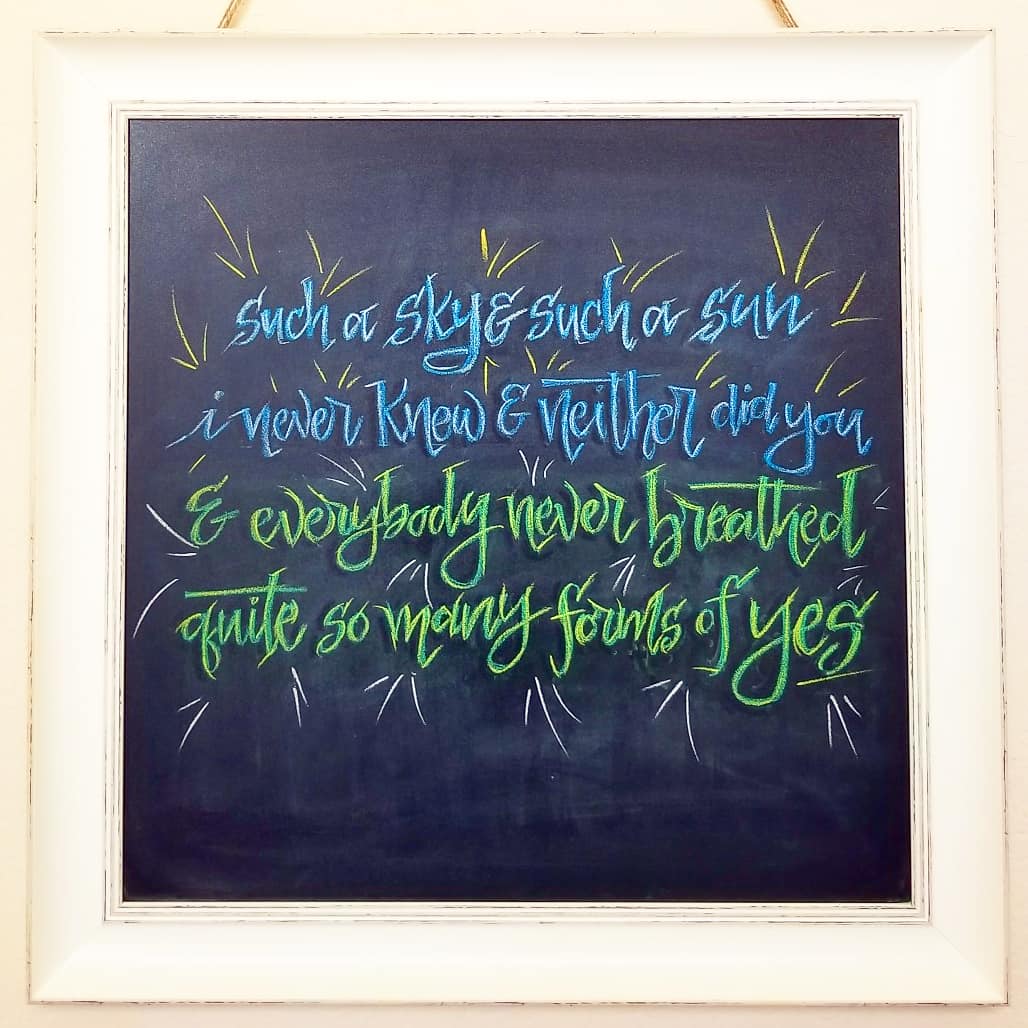 such a sky & such a sun
i never knew & neither did you
& everybody never breathed
quite so many forms of yes